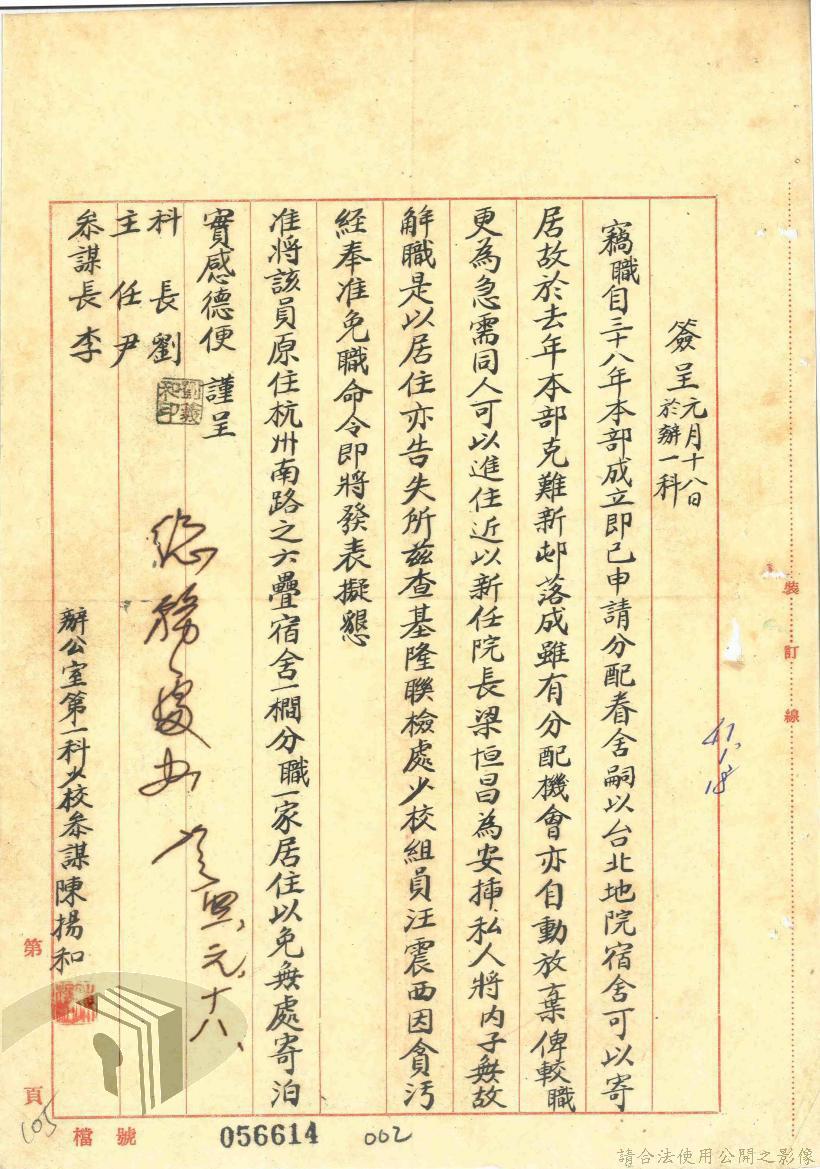 簽呈 元月十八日
於辦一科
竊職自三十八年本部成立即已申請分配眷舍嗣以台北地院宿舍可以寄
居故於去年本部克難新邨落成雖有分配機會亦自動放棄俾較職
更為急需同人可以進住近以新任院長梁恒昌為安揷私人將內子無故
解職是以居住亦告失所茲查基隆聯檢處少校組員汪震西因貪汚
經奉准免職命令即將發表擬懇
准將該員原住杭州南路之六疊宿舍一橺分職一家居住以免無處寄泊
實感德便 謹呈
科長劉
主任尹
參謀長李
總務處辦
元、十八、
辦公室第一科少校參謀陳揚和
41.1.18
裝訂線
第頁
105
檔號
056614
002
請合法使用公開之影像